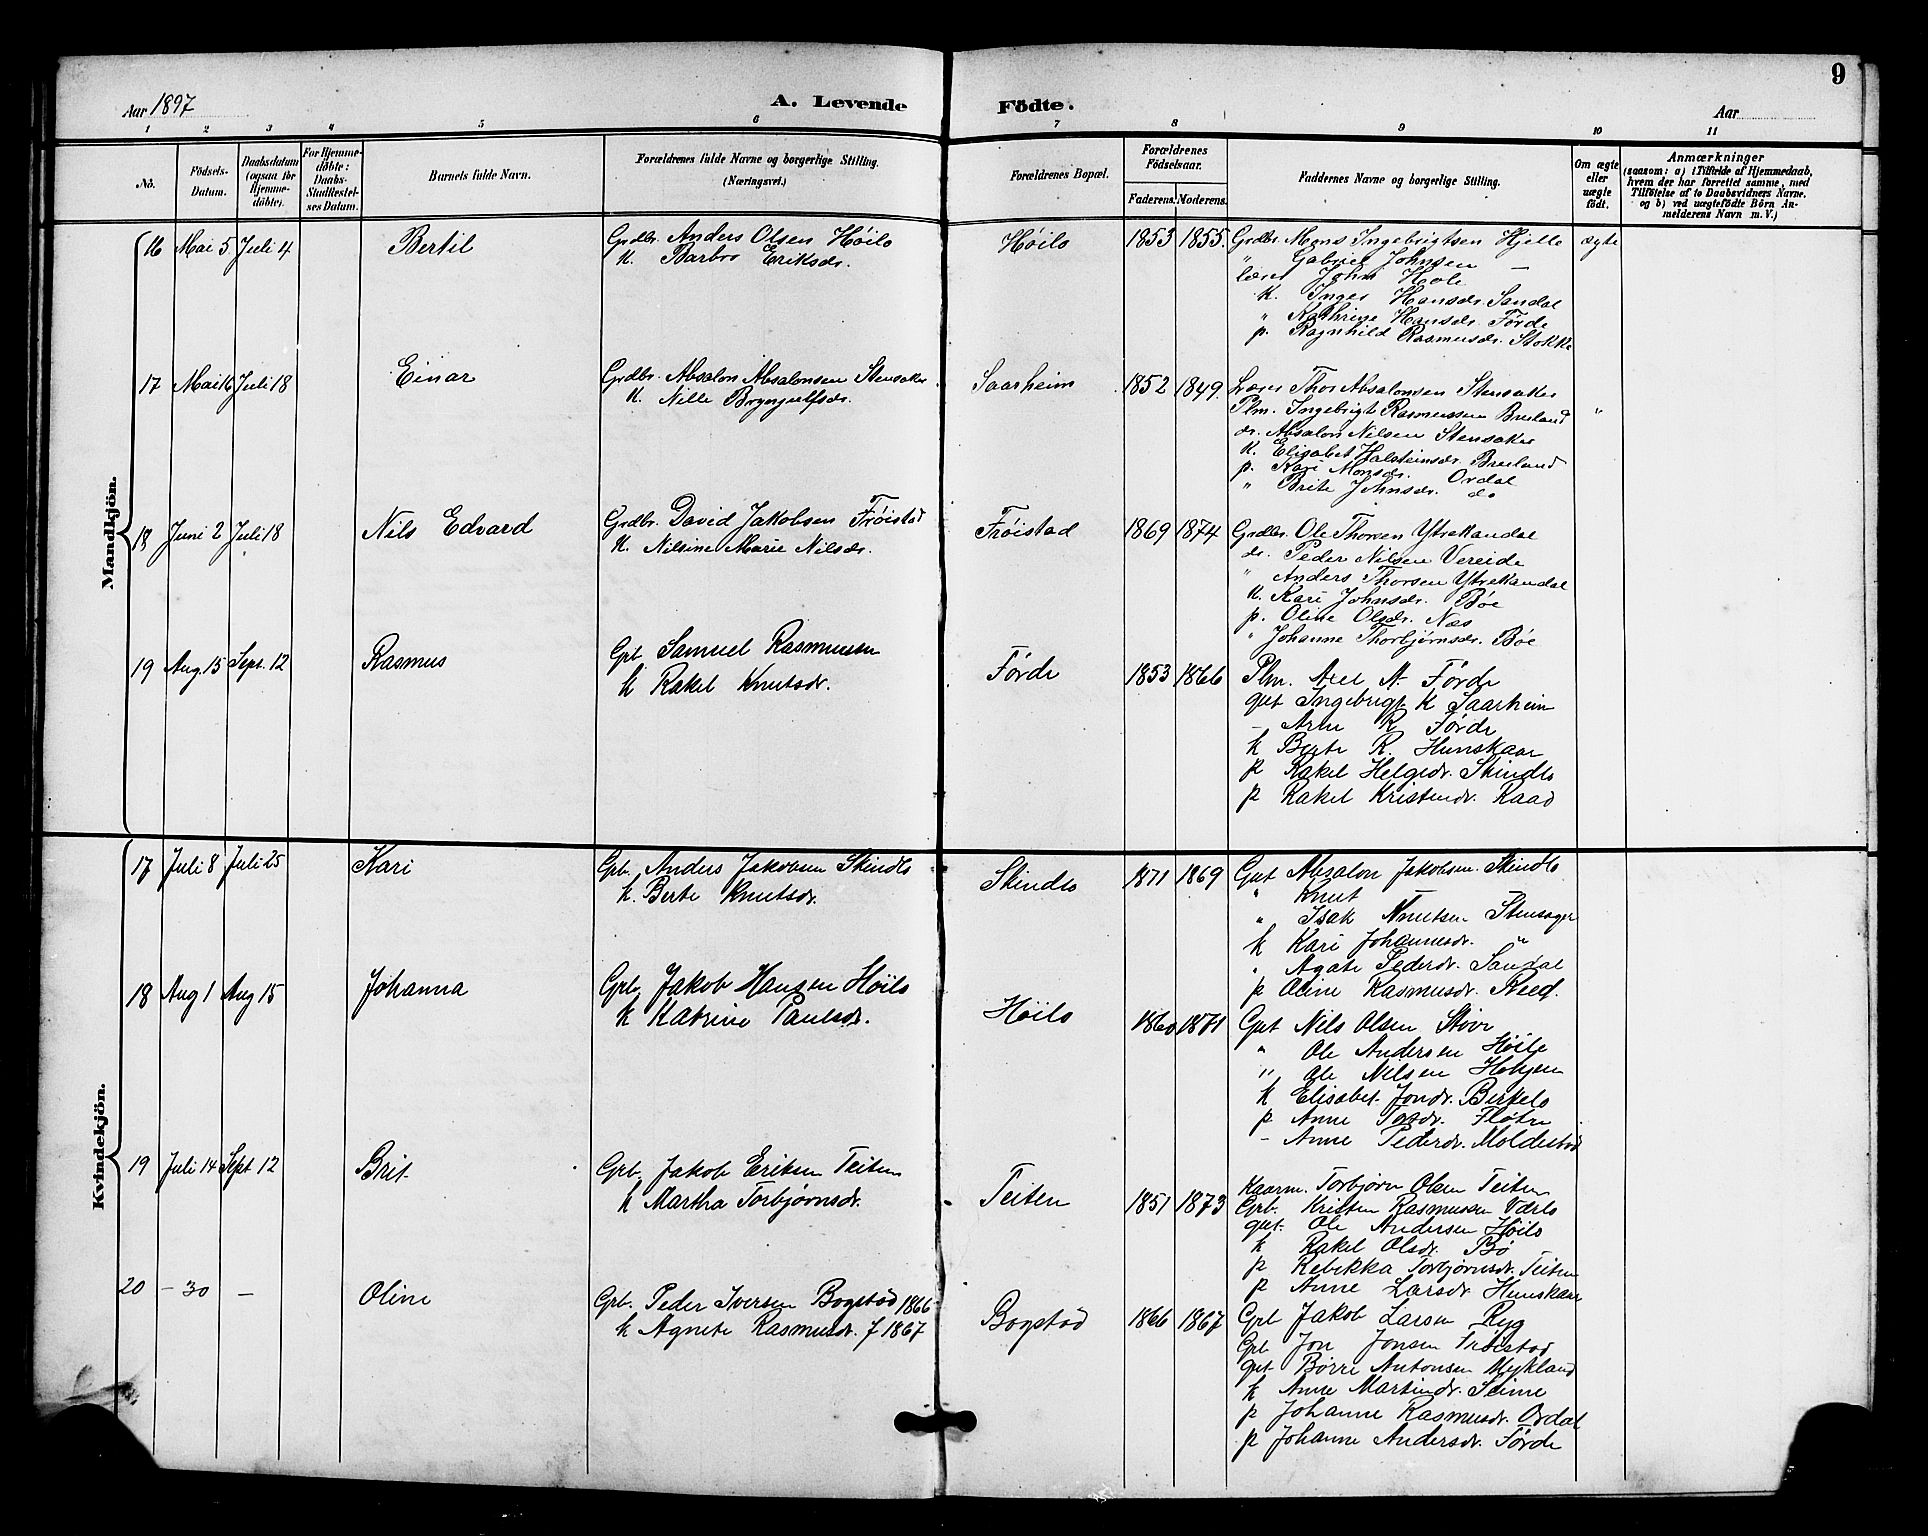 9
Aar 1897 A. Levende Födte. Aar
1 2 3 4 5 6 7 8 9 10 11
No. Födsels-Datum. Daabsdatum (ogsaa for Hjemme-döbte). For Hjemme-döbte: Daabs-Stadfæstel-ses Datum. Barnets fulde Navn. Forældrenes fulde Navne og borgerlige Stilling. (Næringsvei.) Forældrenes Bopæl. Forældrenes Födselsaar. Faderens. Moderens. Faddernes Navne og borgerlige Stilling. Om ægte eller uægte födt. Anmærkninger (saasom: a) i Tilfælde af Hjemmedaab, hvem der har forrettet samme, med Tilföielse af to Daabsvidners Navne. og b) ved uægtefödte Börn An-melderens Navn m. V.)
Mandkjön.
16 Mai 5 Juli 4 Bertil Grdbr. Anders Olsen Höilo Höilo 1853 1855 Grdbr. Mons Ingebrigtsen Hjelle ægte
K. Barbro Eriksdr. " Gabriel Johnsen —
Lærer John Hole
K. Inger Hansdr. Sandal
" Kathrine Hansdr. Förde
p. Ragnhild Rasmusdr. Stokke
17 Mai 16 Juli 18 Einar Grdbr. Absalon Absalonsen Stensaker Saarheim 1852 1849 Lærer Thor Absalonsen Stensaker "
K. Nille Brynjulfsdr. Plm. Ingebrigt Rasmussen Breiland
dr. Absalon Nilsen Stensaker
K. Elisabet Halsteinsdr. Breiland
p. Kari Monsdr. Ordal
" Brite Johnsdr. do
18 Juni 2 Juli 18 Nils Edvard Grdbr. David Jakobsen Fröistad Fröistad 1869 1874 Grdbr. Ole Thorsen Ytrekandal
K. Nilsine Marie Nilsdr. dr. Peder Nilsen Vereide
" Anders Thorsen Ytrekandal
K. Kari Johnsdr. Böe
p. Oline Olsdr. Næs
" Johanne Thorbjörnsdr. Böe
19 Aug. 15 Sept. 12 Rasmus Grb. Samuel Rasmussen Förde 1853 1866 Plm. Axel A. Förde
k Rakel Knutsdr. gut Ingebrigt K Saarheim
– Arne R Förde
k Berte R. Hunskaar
p Rakel Helgedr. Skindlo
p Rakel Kristendr. Raad
Kvindekjön.
17 Juli 8 Juli 25 Kari Grb. Anders Jakobsen Skindlo Skindlo 1871 1869 Gut Absalon Jakobsen Skindlo
k. Berte Knutsdr. " Knut
" Isak Knutsen Stensager
k Kari Johannesdr. "
" Agate Pedersdr. Sandal
p Oline Rasmusdr. Reed.
18 Aug 1 Aug 15 Johanna Grb. Jakob Hansen Höilo Höilo 1860 1871 Gut Nils Olsen Störe
k Katrine Paulsdr. " Ole Andersen Höilo
" Ole Nilsen
k Elisabet Jondr. Birkelo
p Anne Flötre
– Anne Pedersdr. Moldestad
19 Juli 14 Sept 12 Brit Grb. Jakob Eriksen Teiten Teiten 1851 1873 Kaarm. Torbjörn Olsen Teiten
k Martha Torbjörnsdr. Grb. Kristen Rasmussen
gut. Ole Andersen Höilo
k Rakel Olsdr. Bö
p Rebekka Torbjörnsdr. Teiten
p Anne Larsdr. Hunskaar
20 – 30 – Oline Grb. Peder Iversen Bogstad 1866 Bogstad 1866 1867 Grb Jakob Larsen Ryg
k Agnete Rasmusdr. f 1867 Grb Jon Jonsen Fröistad
gut Börre Antonsen Mykland
k Anne Martindr. Seime
p Johanne Rasmusdr. Ordal
p Johanne Andersdr. Förde